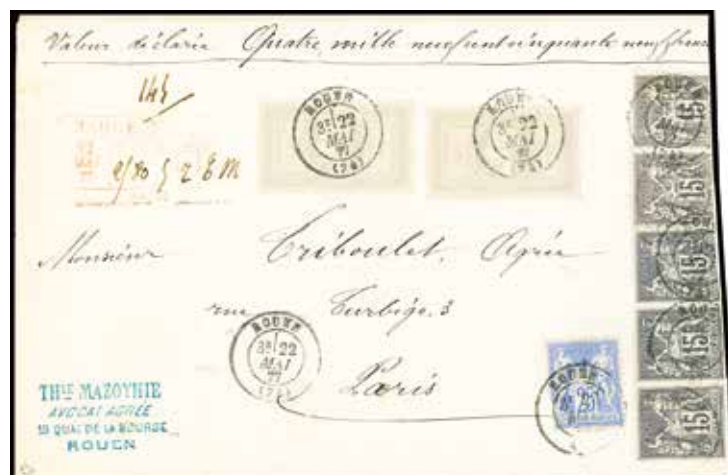 Valeur déclarée Quatre mille neuf cent cinquante neuf francs
144
ROUEN
3E 22
MAI
77
(74)
ROUEN
3E 22
MAI
77
(74)
15
15
15
15
15
Monsieur Triboulet, Agréé
rue Turbigo. 3
Paris
ROUEN
3E 22
MAI
77
(74)
25
THRE MAZOYHIE
AVOCAT AGRÉÉ
19 QUAI DE LA BOURSE
ROUEN